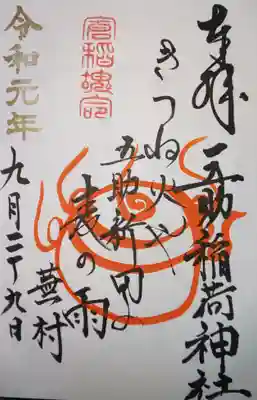 奉拝 五助稲荷神社
きつね火や
五助新田の
麦の雨
蕪村
倉稲魂命
令和元年
九月二十九日